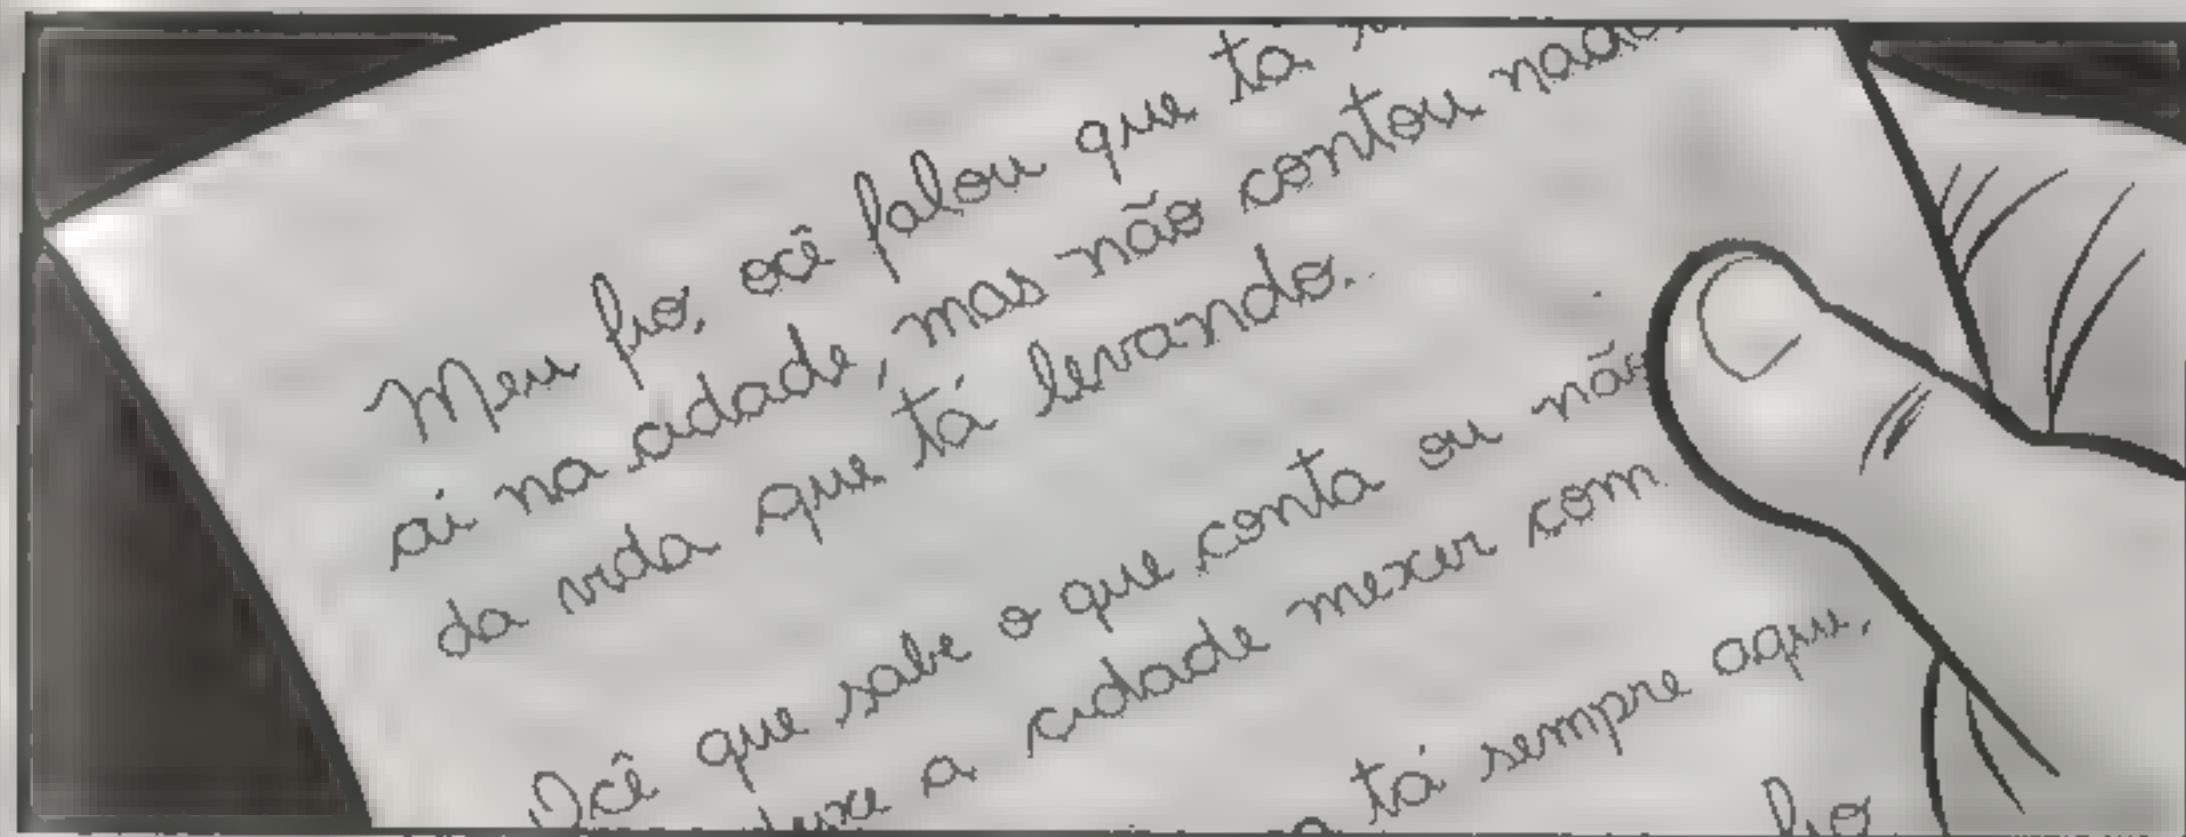 Meu fio, ocê falou que ta
ai na cidade, mas não contou nada
da vida que tá levando.
Ocê que sabe o que conta ou não
deixe a cidade mexer com
tá sempre aqui,
fio